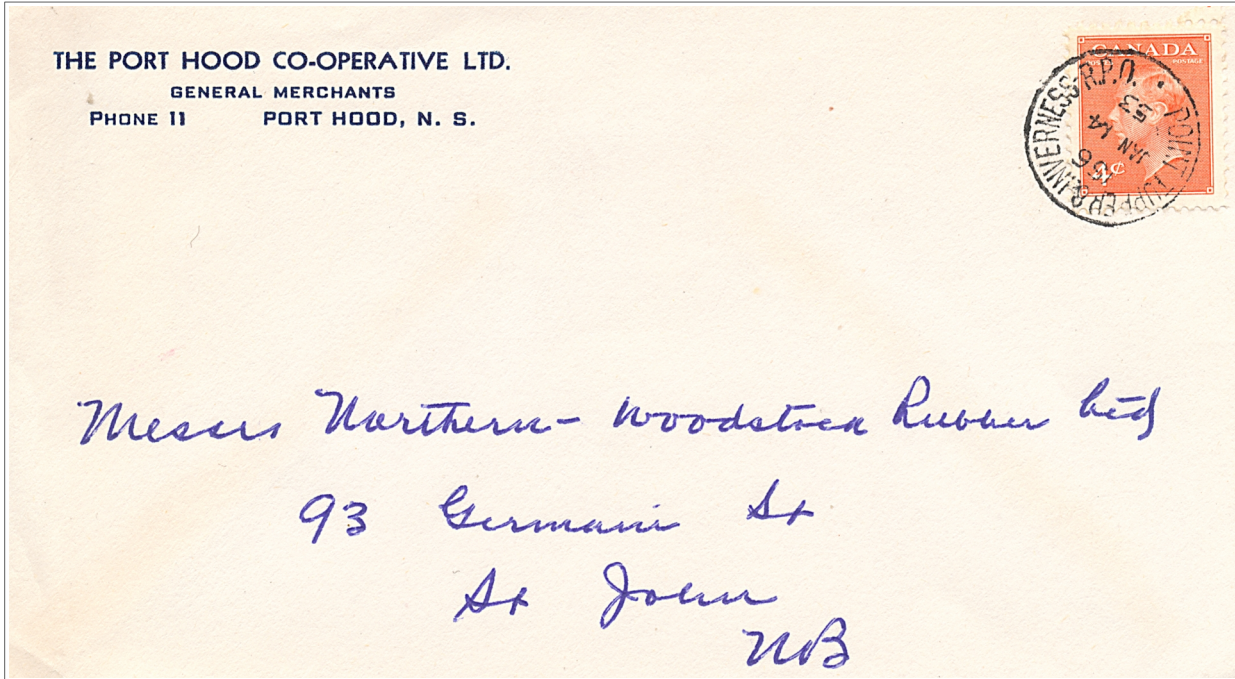 THE PORT HOOD CO-OPERATIVE LTD.
GENERAL MERCHANTS
PHONE 11 PORT HOOD, N. S.
CANADA
POSTAGE
4¢
POINT TUPPER & INVERNESS R.P.O.
166
JAN 14
53
Messrs Northern - Woodstock Rubber Ltd
93 Germain St
St John
NB